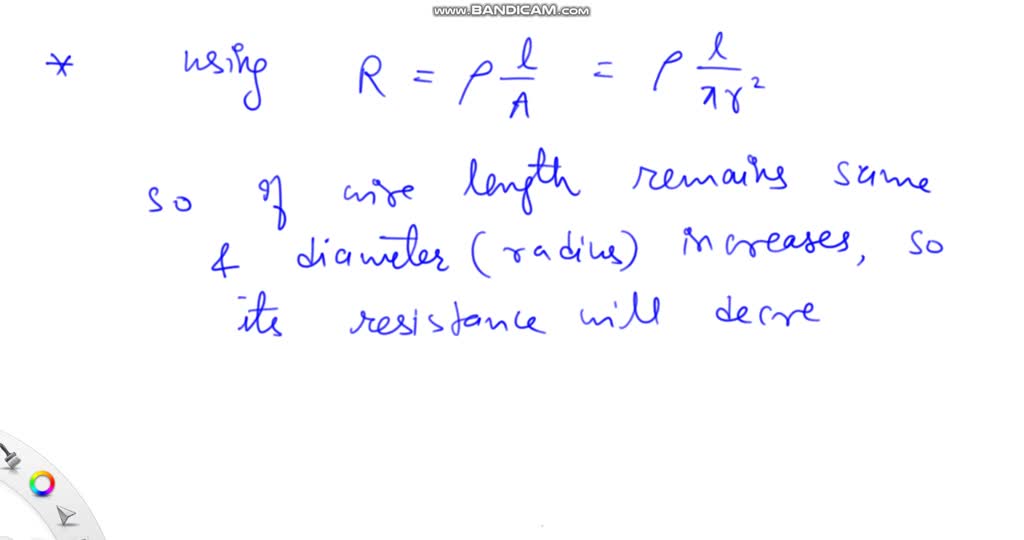 www.BANDICAM.com
* using R = ρ l/A = ρ l/πr²
so if wire length remains same
& diameter (radius) increases, so
its resistance will decre